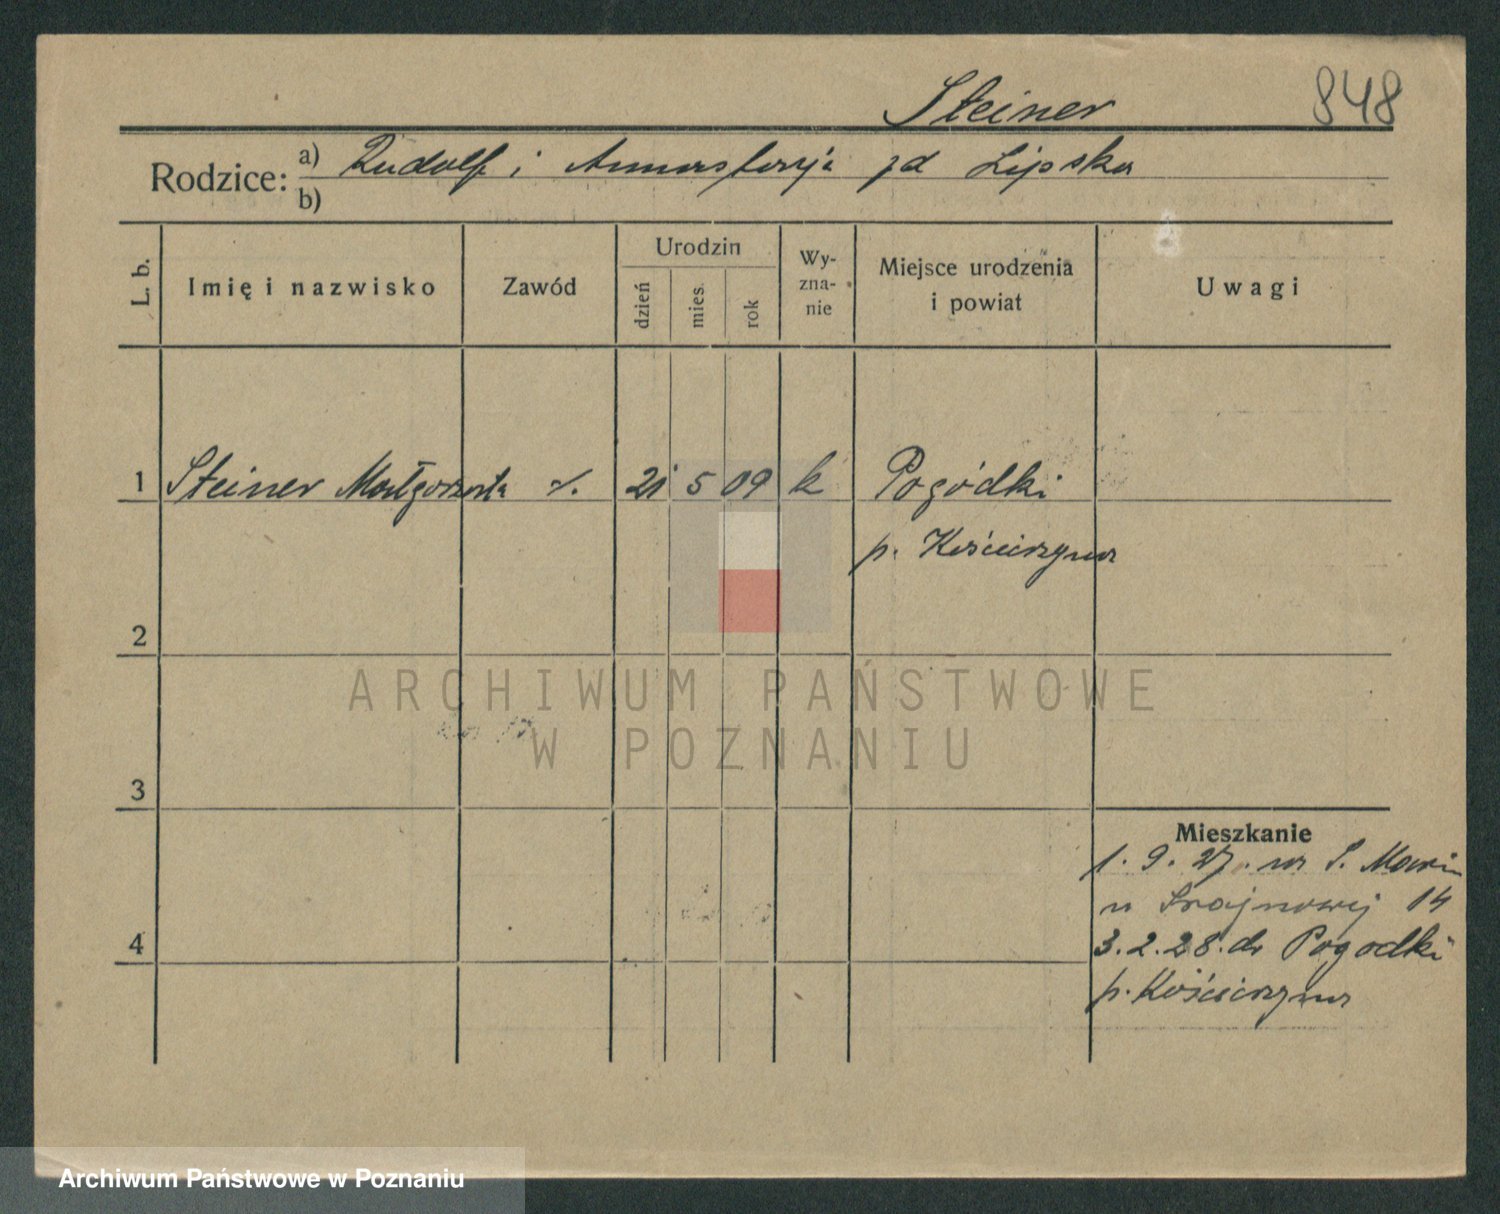 Steiner 848
Rodzice: a) Rudolf i zd Lipska
b)
L. b.
Imię i nazwisko
Zawód
Urodzin
dzień
mies.
rok
Wy-
zna-
nie
Miejsce urodzenia
i powiat
Uwagi
1 Steiner Małgorzata 21 5 09 k Pogódki
p. Kościerzyna
2
ARCHIWUM PAŃSTWOWE
W POZNANIU
3
Mieszkanie
1. 9. 27.
14
4
3. 2. 28. do Pogodki
p. Kościerzyna
Archiwum Państwowe w Poznaniu